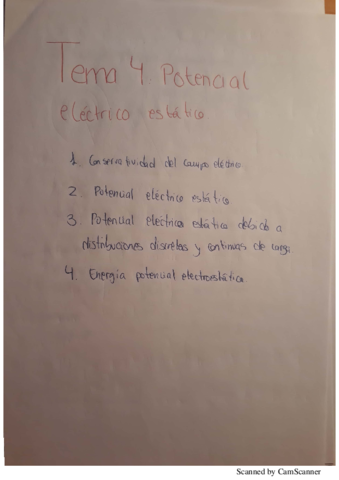 Tema 4 Potencial
eléctrico estático
1. Conservatividad del campo eléctrico
2. Potencial eléctrico estático
3. Potencial eléctrico estático debido a
distribuciones discretas y continuas de carga
4. Energía potencial electrostática
Scanned by CamScanner